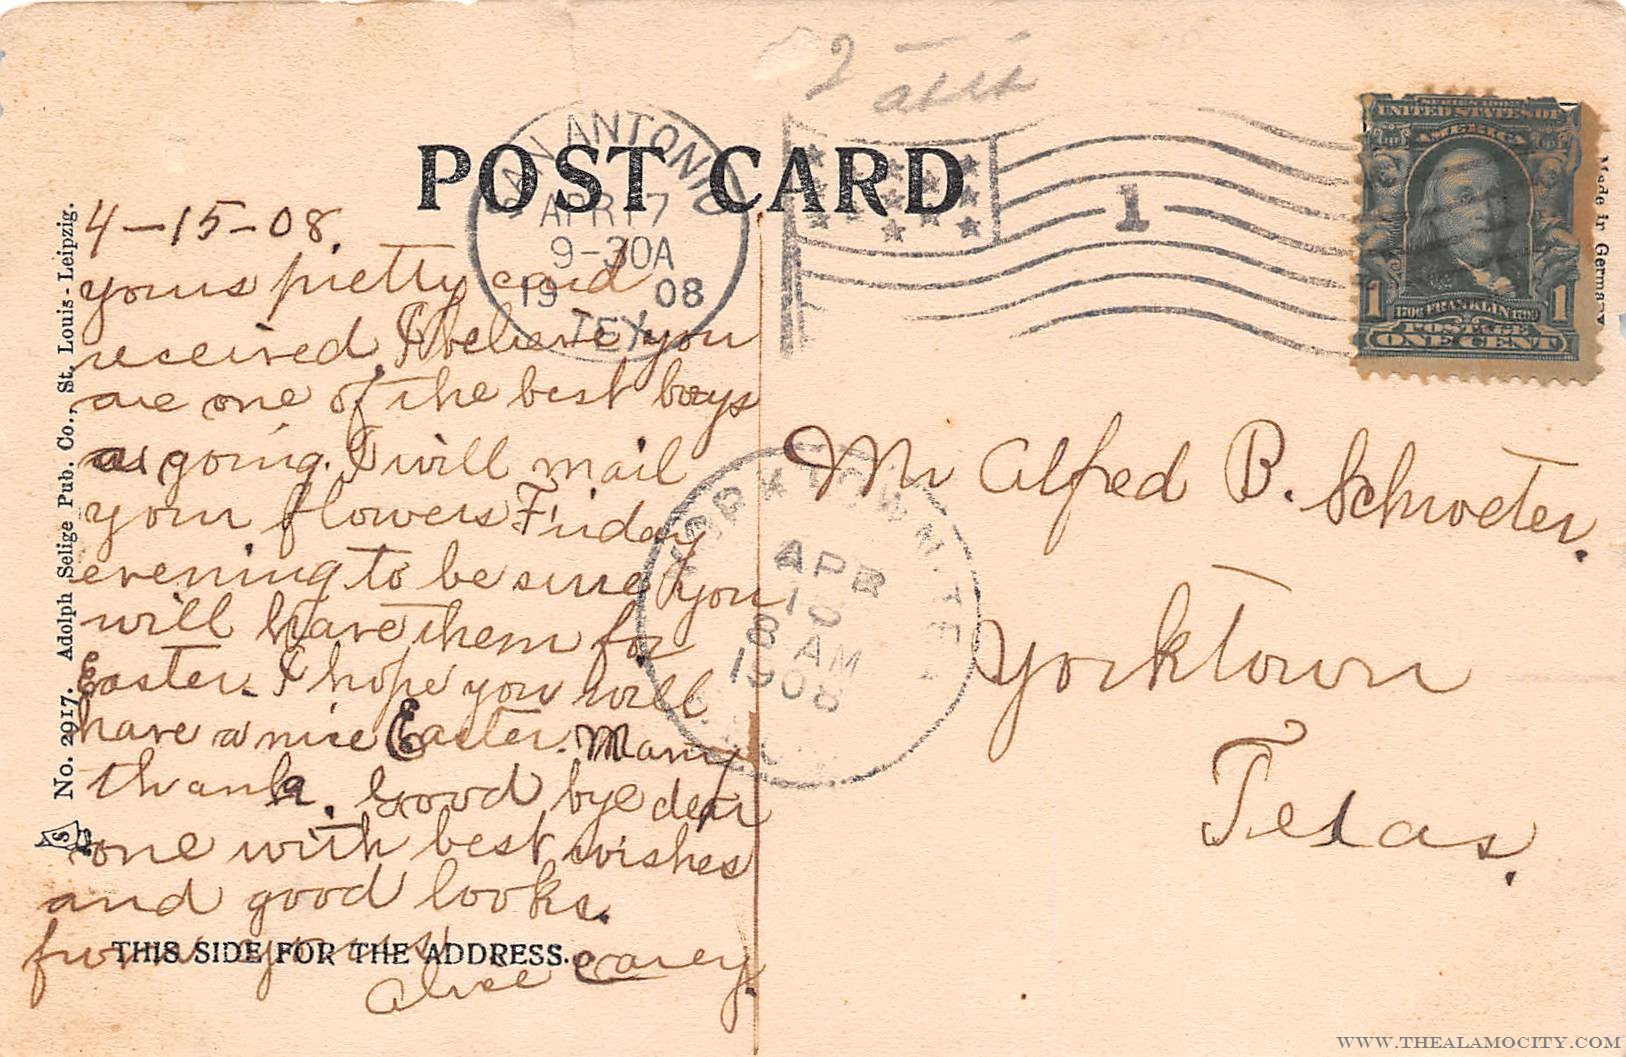 POST CARD
SAN ANTONIO
APR 17
9-30A
1908
TEX.
1
2
SERIES 1902
UNITED STATES OF
AMERICA
1 1
1706 FRANKLIN 1790
POSTAGE
ONE CENT
Made in Germany
No. 2917. Adolph Selige Pub. Co., St. Louis - Leipzig.
S
4-15-08.
yours pretty card
received, I believe you
are one of the best boys
as going. I will mail
your flowers Friday
evening to be sure you
will have them for
Easter. I hope you will
have a nice Easter. Many
thanks. Good bye dear
one with best wishes
and good looks.
from yours
Alice Carey.
THIS SIDE FOR THE ADDRESS.
YORKTOWN
APR
8 AM
1908
Mr Alfred B. Schroeter.
Yorktown
Texas.
WWW.THEALAMOCITY.COM